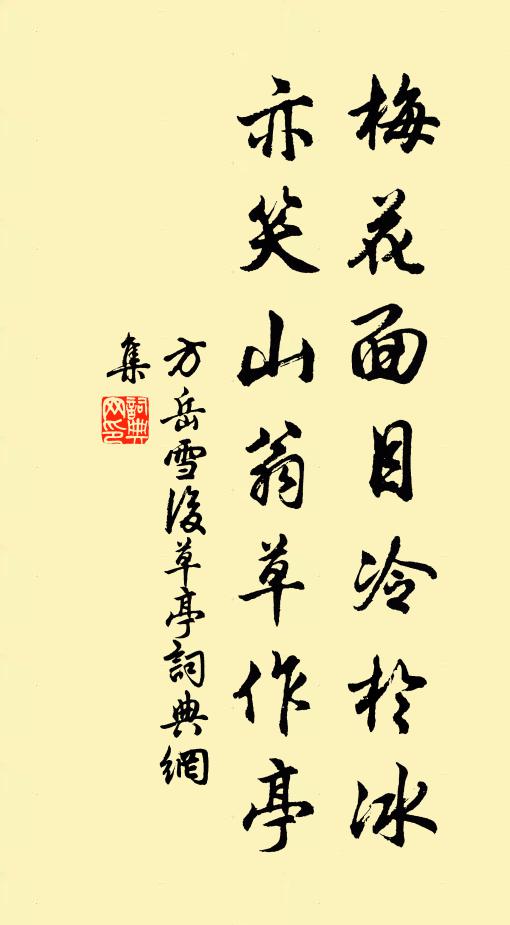 梅花面目冷於冰
亦笑山翁草作亭
方岳雪後草亭詞典網
集
詞典網印